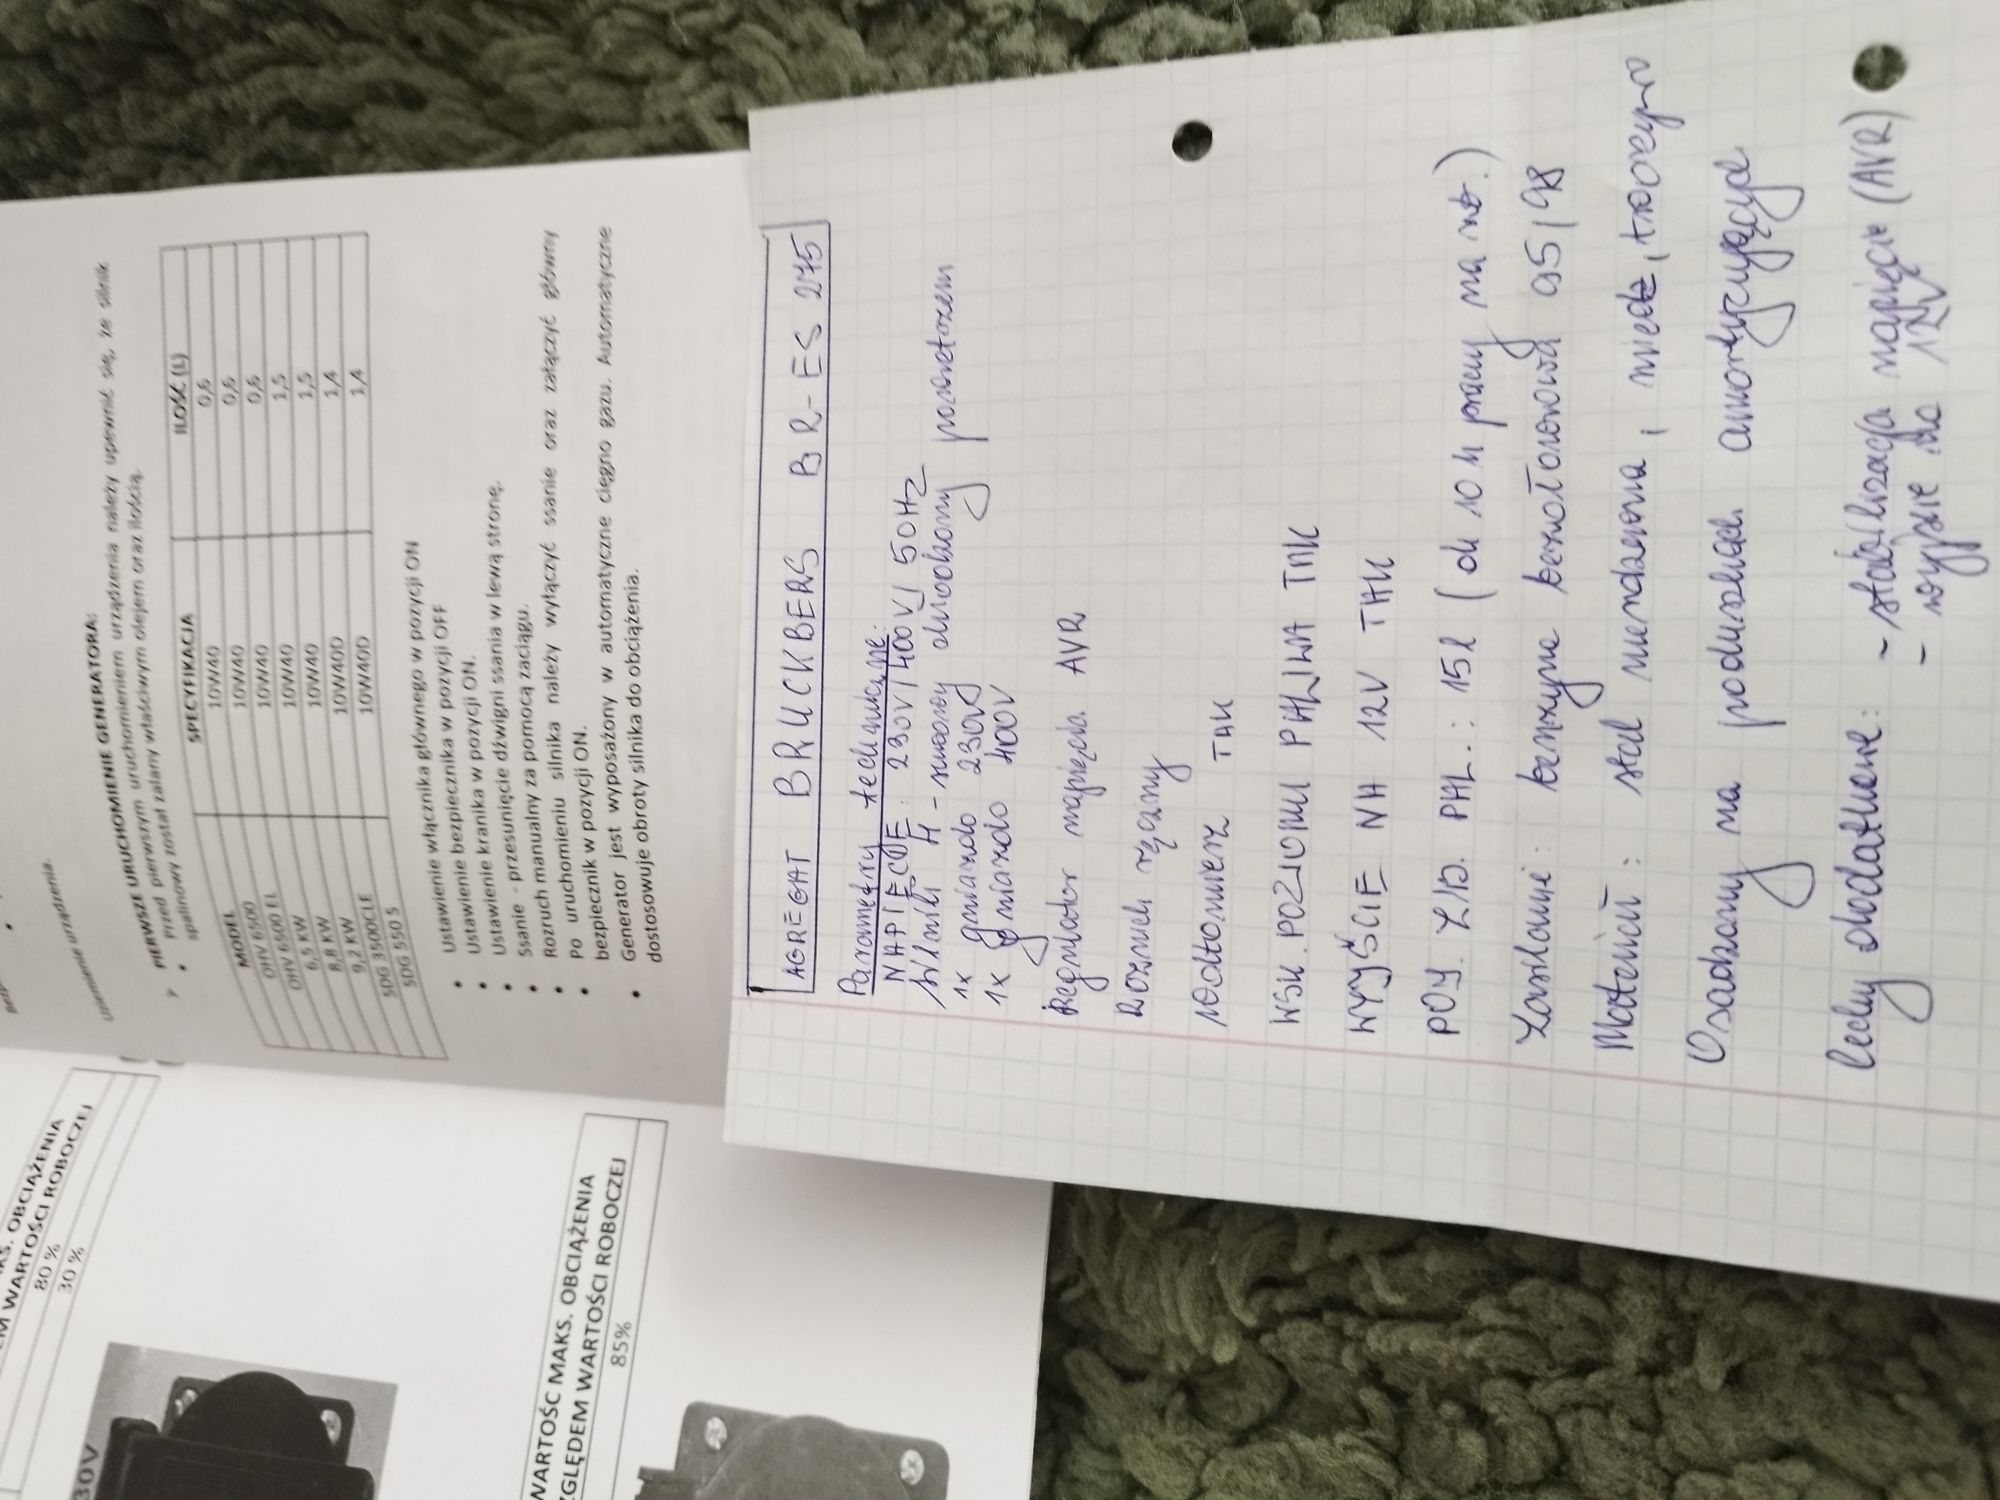 Uziemienie urządzenia.
PIERWSZE URUCHOMIENIE GENERATORA:
Przed pierwszym uruchomieniem urządzenia należy upewnić się, że silnik
spalinowy został zalany właściwym olejem oraz ilością.
MODEL SPECYFIKACJA ILOŚĆ (L)
OHV 6500 10W40 0,6
OHV 6500 EL 10W40 0,6
6,5 KW 10W40 0,6
8,8 KW 10W40 1,5
9,2 KW 10W40 1,5
SDG 3500CLE 10W40D 1,4
SDG 550 S 10W40D 1,4
• Ustawienie włącznika głównego w pozycji ON
• Ustawienie bezpiecznika w pozycji OFF
• Ustawienie kranika w pozycji ON.
• Ssanie - przesunięcie dźwigni ssania w lewą stronę.
• Rozruch manualny za pomocą zaciągu.
• Po uruchomieniu silnika należy wyłączyć ssanie oraz załączyć główny
bezpiecznik w pozycji ON.
• Generator jest wyposażony w automatyczne cięgno gazu. Automatyczne
dostosowuje obroty silnika do obciążenia.
OBCIĄŻENIA
WARTOŚCI ROBOCZEJ
80 %
30 %
30V
WARTOŚC MAKS. OBCIĄŻENIA
ZGLĘDEM WARTOŚCI ROBOCZEJ
85%
AGREGAT BRUCKBERS BR-ES 275
Parametry techniczne:
NAPIĘCIE: 230V/400V/50Hz
Silnik 4-suwowy chłodzony powietrzem
1x gniazdo 230V
1x gniazdo 400V
Regulator napięcia AVR
Rozruch ręczny
Woltomierz TAK
WSK. POZIOMU PALIWA TAK
WYJŚCIE NA 12V TAK
POJ. ZB. PAL.: 15l (ok 10 h pracy na)
Zasilanie: benzyna bezołowiowa 95/98
Materiał: stal nierdzewna, miedź, tworzywo
Osadzony na poduszkach amortyzujących
Cechy dodatkowe: - stabilizacja napięcia (AVR)
- wyjście na 12V